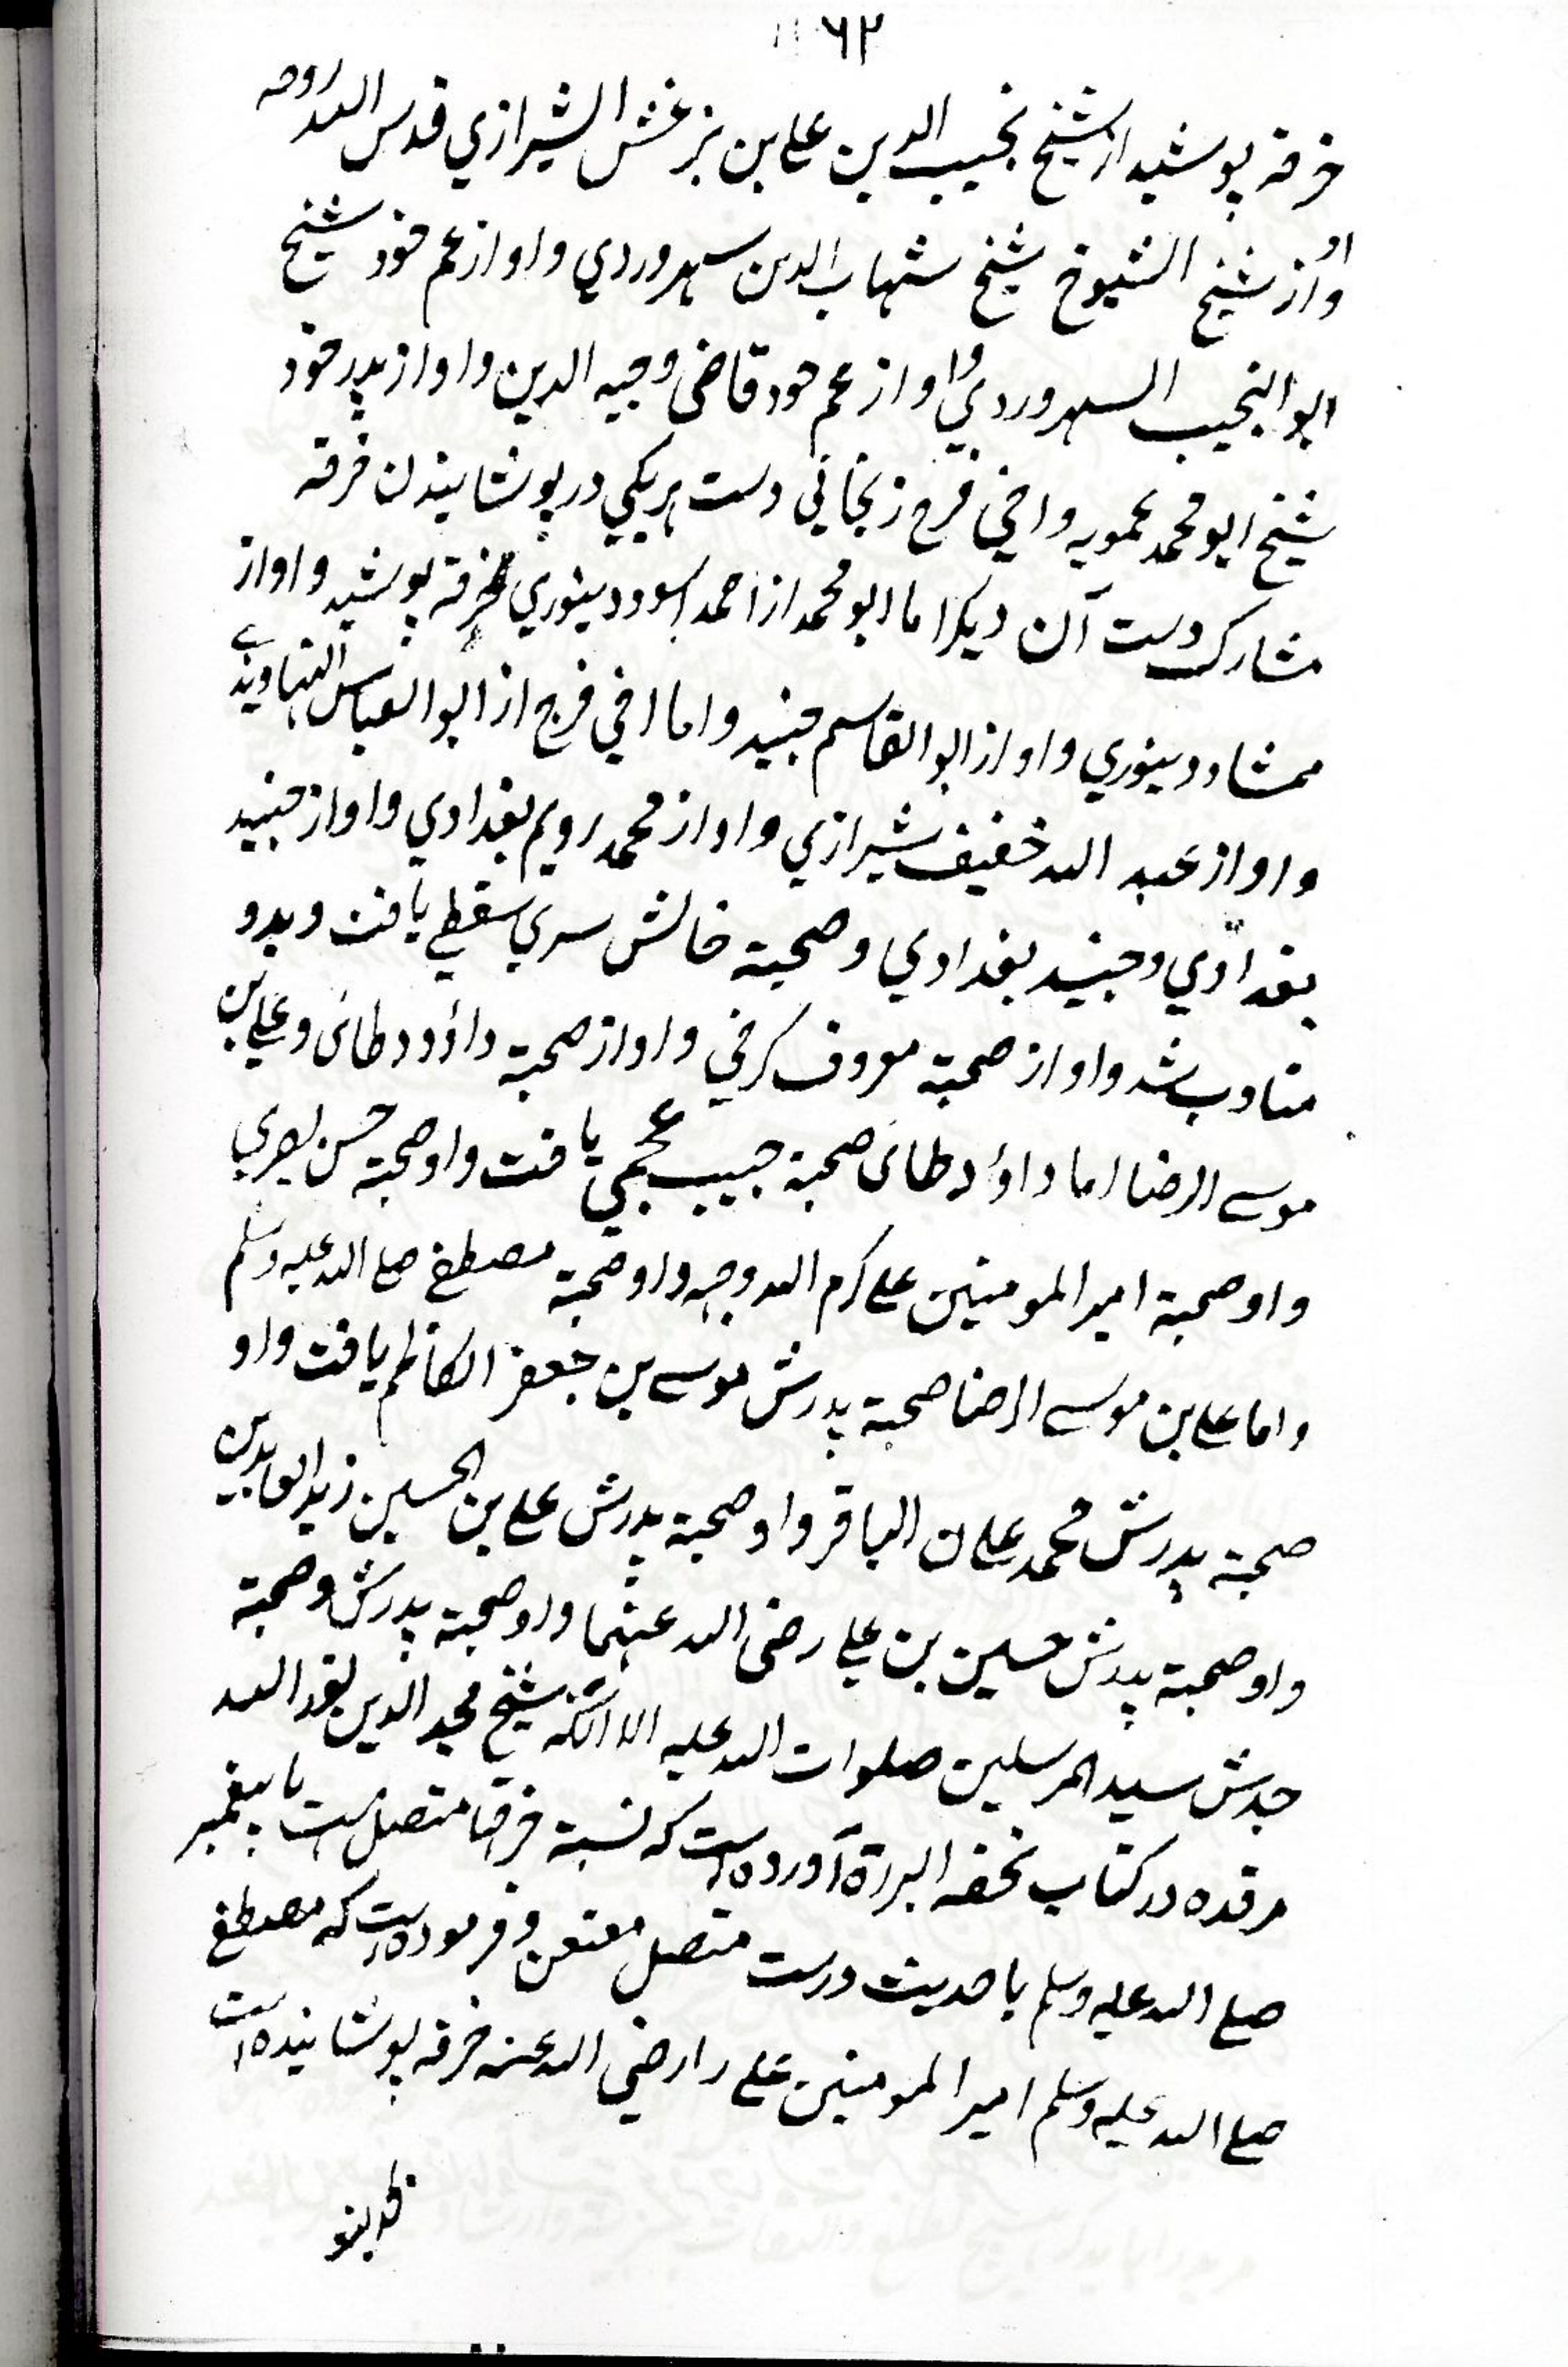 ۶۲
خرقه پوشید از شیخ نجیب الدین علی بن بزغش الشیرازي قدس الله روحه
و او از شیخ الشیوخ شیخ شهاب الدین سهروردي و او از عم خود شیخ
ابو النجیب السهروردي و او از عم خود قاضی وجیه الدین و او از پدر خود
شیخ ابو محمد عمویه و اخي فرج زنجاني دست هریکي در پوشانیدن خرقه
مشارک دست آن دیکر اما ابو محمد از احمد اسود دینوري خرقه پوشید و او از
ممشاد دینوري و او از ابو القاسم جنید و اما اخي فرج از ابو العباس النهاوندے
و او از عبد الله خفیف شیرازي و او از محمد رویم بغدادي و او از جنید
بغدادي و جنید بغدادي و صحبة خالش سري سقطي یافت و بدو
مناوب شد و او از صحبة معروف کرخي و او از صحبة داؤد طائی و علي بن
موسے الرضا اما داؤد طائی صحبة حبیب عجمي یافت و او صحبة حسن بصري
و او صحبة امیر المومنین علی کرم الله وجهه و او صحبة مصطفے صلے الله علیه وسلم
و اما علی بن موسے الرضا صحبة پدرش موسے بن جعفر الکاظم یافت و او
صحبة پدرش محمد علی ن الباقر و او صحبة پدرش علی بن الحسین زید العابدین
و او صحبة پدرش حسین بن علي رضی الله عنهما و او صحبة پدرش و صحبة
جدش سید المرسلین صلوات الله علیه الا آنکه شیخ مجد الدین بغد الله
مرقده در کتاب تحفه البررة آورده است که نسبة خرقها متصل است با پیغمبر
صلے الله علیه وسلم با حدیث درست متصل معنعن و فرموده است که مصطفے
صلے الله علیه وسلم امیر المومنین علی را رضي الله عنه خرقه پوشانیده است